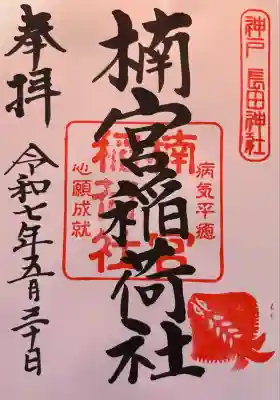 神戸 長田神社
楠宮稲荷社
病気平癒
楠宮
稲荷社
心願成就
奉拝
令和七年五月二十日